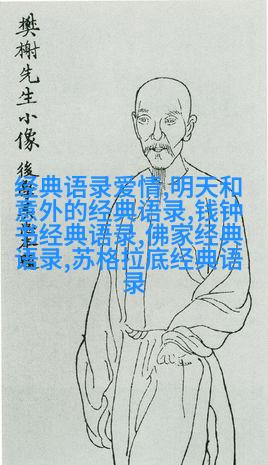 樊榭先生小像
後
经典语录爱情,明天和
意外的经典语录,钱钟
书经典语录,佛家经典
语录,苏格拉底经典语
录